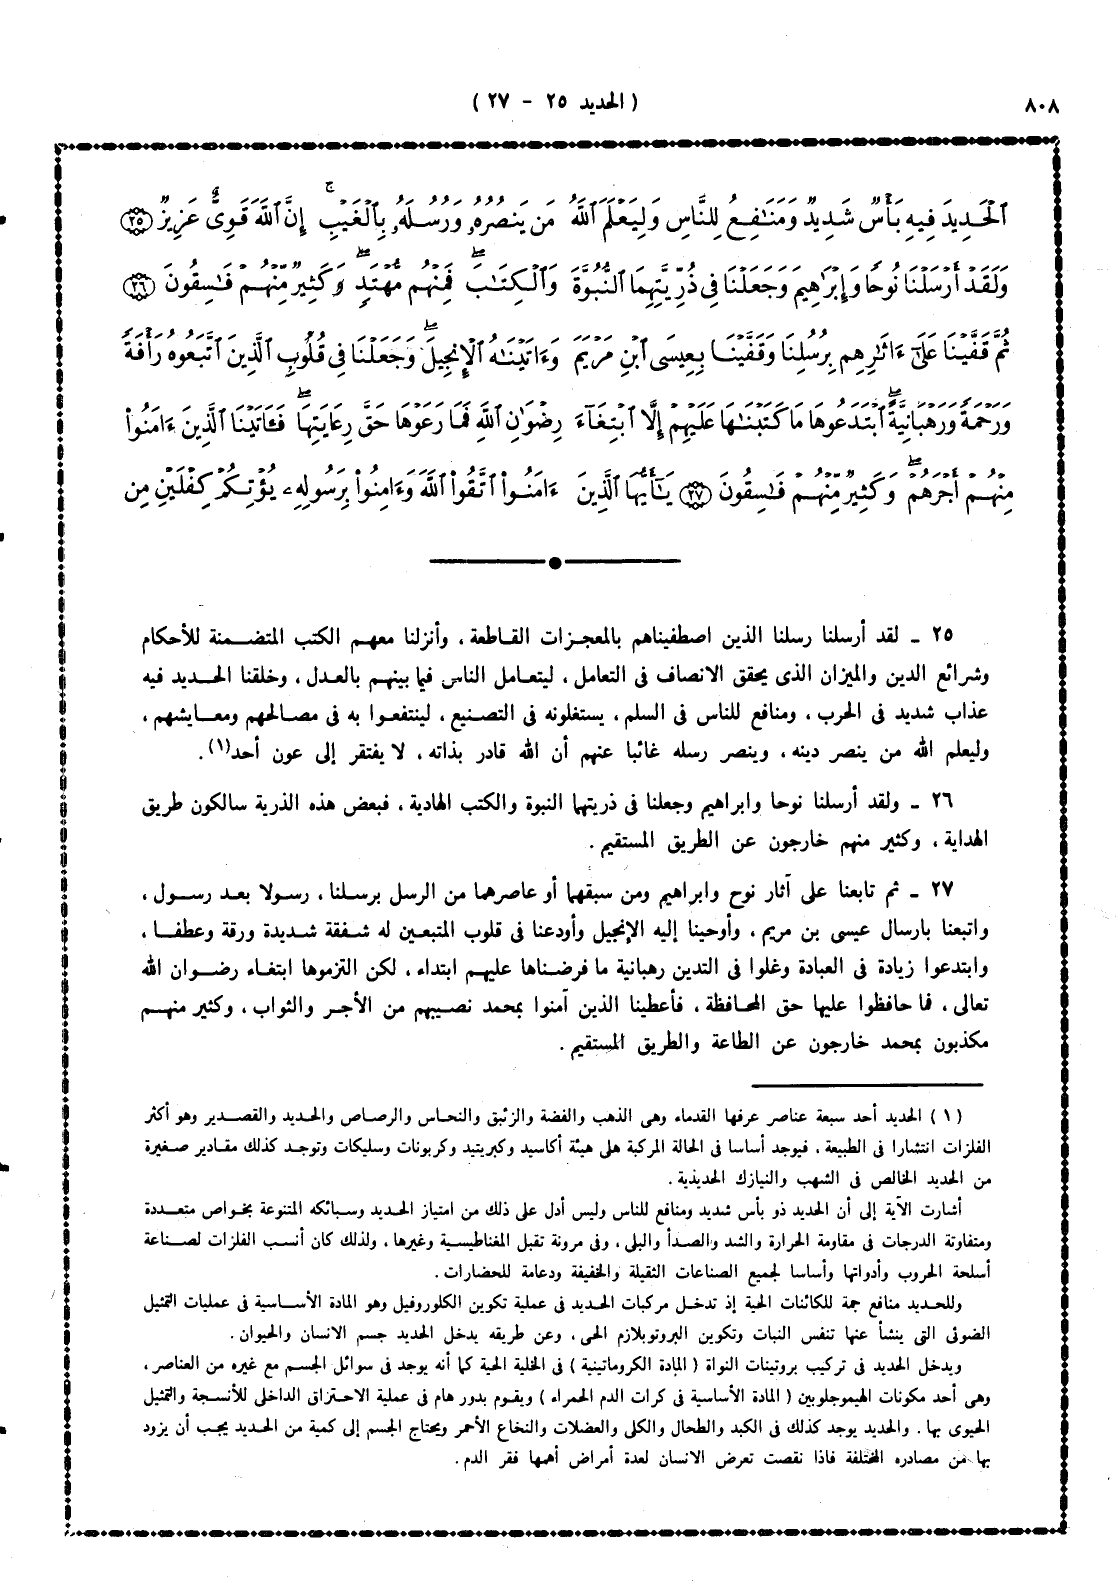 ٨٠٨
( الحديد ٢٥ – ٢٧ )
ٱلْحَدِيدَ فِيهِ بَأْسٌ شَدِيدٌ وَمَنَٰفِعُ لِلنَّاسِ وَلِيَعْلَمَ ٱللَّهُ مَن يَنصُرُهُۥ وَرُسُلَهُۥ بِٱلْغَيْبِ ۚ إِنَّ ٱللَّهَ قَوِىٌّ عَزِيزٌ ٢٥
وَلَقَدْ أَرْسَلْنَا نُوحًا وَإِبْرَٰهِيمَ وَجَعَلْنَا فِى ذُرِّيَّتِهِمَا ٱلنُّبُوَّةَ وَٱلْكِتَٰبَ ۖ فَمِنْهُم مُّهْتَدٍ ۖ وَكَثِيرٌ مِّنْهُمْ فَٰسِقُونَ ٢٦
ثُمَّ قَفَّيْنَا عَلَىٰٓ ءَاثَٰرِهِم بِرُسُلِنَا وَقَفَّيْنَا بِعِيسَى ٱبْنِ مَرْيَمَ وَءَاتَيْنَٰهُ ٱلْإِنجِيلَ ۖ وَجَعَلْنَا فِى قُلُوبِ ٱلَّذِينَ ٱتَّبَعُوهُ رَأْفَةً
وَرَحْمَةً وَرَهْبَانِيَّةً ۖ ٱبْتَدَعُوهَا مَا كَتَبْنَٰهَا عَلَيْهِمْ إِلَّا ٱبْتِغَآءَ رِضْوَٰنِ ٱللَّهِ فَمَا رَعَوْهَا حَقَّ رِعَايَتِهَا ۖ فَـَٔاتَيْنَا ٱلَّذِينَ ءَامَنُوا۟
مِنْهُمْ أَجْرَهُمْ ۖ وَكَثِيرٌ مِّنْهُمْ فَٰسِقُونَ ٢٧ يَٰٓأَيُّهَا ٱلَّذِينَ ءَامَنُوا۟ ٱتَّقُوا۟ ٱللَّهَ وَءَامِنُوا۟ بِرَسُولِهِۦ يُؤْتِكُمْ كِفْلَيْنِ مِن
٢٥ – لقد أرسلنا رسلنا الذين اصطفيناهم بالمعجزات القاطعة ، وأنزلنا معهم الكتب المتضمنة للأحكام
وشرائع الدين والميزان الذى يحقق الانصاف فى التعامل ، ليتعامل الناس فيما بينهم بالعدل ، وخلقنا الحديد فيه
عذاب شديد فى الحرب ، ومنافع للناس فى السلم ، يستغلونه فى التصنيع ، لينتفعوا به فى مصالحهم ومعايشهم ،
وليعلم الله من ينصر دينه ، وينصر رسله غائبا عنهم أن الله قادر بذاته ، لا يفتقر إلى عون أحد(١) .
٢٦ – ولقد أرسلنا نوحا وابراهيم وجعلنا فى ذريتهما النبوة والكتب الهادية ، فبعض هذه الذرية سالكون طريق
الهداية ، وكثير منهم خارجون عن الطريق المستقيم .
٢٧ – ثم تابعنا على آثار نوح وابراهيم ومن سبقهما أو عاصرهما من الرسل برسلنا ، رسولا بعد رسول ،
واتبعنا بارسال عيسى بن مريم ، وأوحينا إليه الإنجيل وأودعنا فى قلوب المتبعين له شفقة شديدة ورقة وعطفا ،
وابتدعوا زيادة فى العبادة وغلوا فى التدين رهبانية ما فرضناها عليهم ابتداء ، لكن التزموها ابتغاء رضوان الله
تعالى ، فما حافظوا عليها حق المحافظة ، فأعطينا الذين آمنوا بمحمد نصيبهم من الأجر والثواب ، وكثير منهم
مكذبون بمحمد خارجون عن الطاعة والطريق المستقيم .
( ١ ) الحديد أحد سبعة عناصر عرفها القدماء وهى الذهب والفضة والزئبق والنحاس والرصاص والحديد والقصدير وهو أكثر
الفلزات انتشارا فى الطبيعة ، فيوجد أساسا فى الحالة المركبة على هيئة أكاسيد وكبريتيد وكربونات وسليكات وتوجد كذلك مقادير صغيرة
من الحديد الخالص فى الشهب والنيازك الحديدية .
أشارت الآية إلى أن الحديد ذو بأس شديد ومنافع للناس وليس أدل على ذلك من امتياز الحديد وسبائكه المتنوعة بخواص متعددة
ومتفاوتة الدرجات فى مقاومة الحرارة والشد والصدأ والبلى ، وفى مرونة تقبل المغناطيسية وغيرها ، ولذلك كان أنسب الفلزات لصناعة
أسلحة الحروب وأدواتها وأساسا لجميع الصناعات الثقيلة والخفيفة ودعامة للحضارات .
وللحديد منافع جمة للكائنات الحية إذ تدخل مركبات الحديد فى عملية تكوين الكلوروفيل وهو المادة الأساسية فى عمليات التمثيل
الضوئى التى ينشأ عنها تنفس النبات وتكوين البروتوبلازم الحى ، وعن طريقه يدخل الحديد جسم الانسان والحيوان .
ويدخل الحديد فى تركيب بروتينات النواة ( المادة الكروماتينية ) فى الخلية الحية كما أنه يوجد فى سوائل الجسم مع غيره من العناصر ،
وهى أحد مكونات الهيموجلوبين ( المادة الأساسية فى كرات الدم الحمراء ) ويقوم بدور هام فى عملية الاحتراق الداخلى للأنسجة والتمثيل
الحيوى بها . والحديد يوجد كذلك فى الكبد والطحال والكلى والعضلات والنخاع الأحمر ويحتاج الجسم إلى كمية من الحديد يجب أن يزود
بها من مصادره المختلفة فاذا نقصت تعرض الانسان لعدة أمراض أهمها فقر الدم .